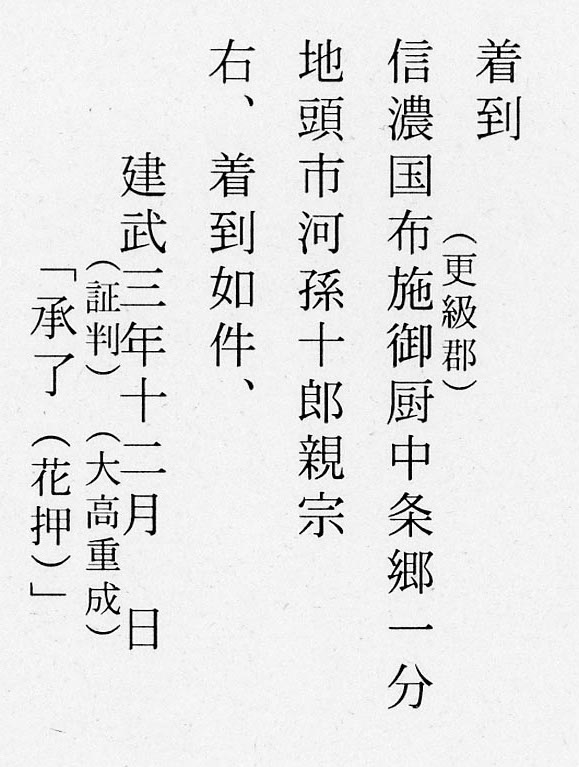 着到
（更級郡）
信濃国布施御厨中条郷一分
地頭市河孫十郎親宗
右、着到如件、
建武三年十二月　日
（証判）（大高重成）
「承了（花押）」